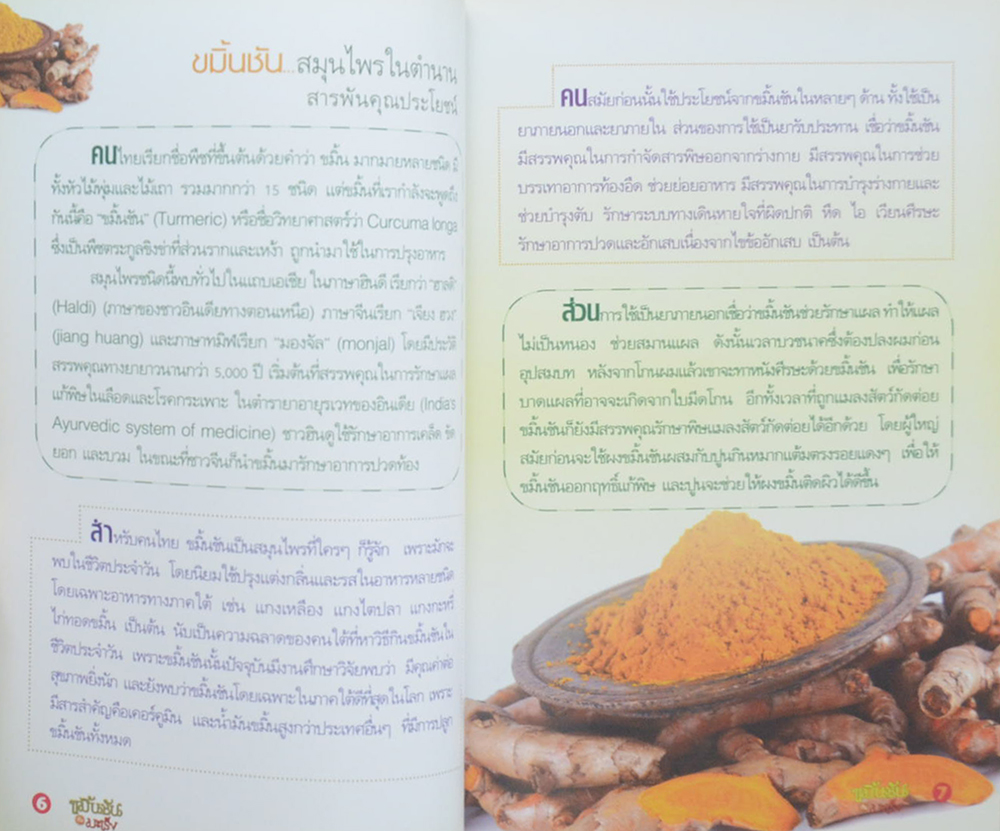 ขมิ้นชัน...สมุนไพรในตำนาน
สารพันคุณประโยชน์
คนไทยเรียกชื่อพืชที่ขึ้นต้นด้วยคำว่า ขมิ้น มากมายหลายชนิด มี
ทั้งหัวไม้พุ่มและไม้เถา รวมมากกว่า 15 ชนิด แต่ขมิ้นที่เรากำลังจะพูดถึง
กันนี้คือ "ขมิ้นชัน" (Turmeric) หรือชื่อวิทยาศาสตร์ว่า Curcuma longa
ซึ่งเป็นพืชตระกูลขิงข่าที่ส่วนรากและเหง้า ถูกนำมาใช้ในการปรุงอาหาร
สมุนไพรชนิดนี้พบทั่วไปในแถบเอเชีย ในภาษาฮินดี เรียกว่า "ฮาลดิ"
(Haldi) (ภาษาของชาวอินเดียทางตอนเหนือ) ภาษาจีนเรียก "เจียง ฮวง"
(jiang huang) และภาษาทมิฬเรียก "มองจัล" (monjal) โดยมีประวัติ
สรรพคุณทางยายาวนานกว่า 5,000 ปี เริ่มต้นที่สรรพคุณในการรักษาแผล
แก้พิษในเลือดและโรคกระเพาะ ในตำรายาอายุรเวทของอินเดีย (India's
Ayurvedic system of medicine) ชาวฮินดูใช้รักษาอาการเคล็ด ขัด
ยอก และบวม ในขณะที่ชาวจีนก็นำขมิ้นมารักษาอาการปวดท้อง
สำหรับคนไทย ขมิ้นชันเป็นสมุนไพรที่ใครๆ ก็รู้จัก เพราะมักจะ
พบในชีวิตประจำวัน โดยนิยมใช้ปรุงแต่งกลิ่นและรสในอาหารหลายชนิด
โดยเฉพาะอาหารทางภาคใต้ เช่น แกงเหลือง แกงไตปลา แกงกะหรี่
ไก่ทอดขมิ้น เป็นต้น นับเป็นความฉลาดของคนใต้ที่หาวิธีกินขมิ้นชันใน
ชีวิตประจำวัน เพราะขมิ้นชันนั้นปัจจุบันมีงานศึกษาวิจัยพบว่า มีคุณค่าต่อ
สุขภาพยิ่งนัก และยังพบว่าขมิ้นชันโดยเฉพาะในภาคใต้ดีที่สุดในโลก เพราะ
มีสารสำคัญคือเคอร์คูมิน และน้ำมันขมิ้นสูงกว่าประเทศอื่นๆ ที่มีการปลูก
ขมิ้นชันทั้งหมด
6 ขมิ้นชัน
มะเร็ง
คนสมัยก่อนนั้นใช้ประโยชน์จากขมิ้นชันในหลายๆ ด้าน ทั้งใช้เป็น
ยาภายนอกและยาภายใน ส่วนของการใช้เป็นยารับประทาน เชื่อว่าขมิ้นชัน
มีสรรพคุณในการกำจัดสารพิษออกจากร่างกาย มีสรรพคุณในการช่วย
บรรเทาอาการท้องอืด ช่วยย่อยอาหาร มีสรรพคุณในการบำรุงร่างกายและ
ช่วยบำรุงตับ รักษาระบบทางเดินหายใจที่ผิดปกติ หืด ไอ เวียนศีรษะ
รักษาอาการปวดและอักเสบเนื่องจากไขข้ออักเสบ เป็นต้น
ส่วนการใช้เป็นยาภายนอกเชื่อว่าขมิ้นชันช่วยรักษาแผล ทำให้แผล
ไม่เป็นหนอง ช่วยสมานแผล ดังนั้นเวลาบวชนาคซึ่งต้องปลงผมก่อน
อุปสมบท หลังจากโกนผมแล้วเขาจะทาหนังศีรษะด้วยขมิ้นชัน เพื่อรักษา
บาดแผลที่อาจจะเกิดจากใบมีดโกน อีกทั้งเวลาที่ถูกแมลงสัตว์กัดต่อย
ขมิ้นชันก็ยังมีสรรพคุณรักษาพิษแมลงสัตว์กัดต่อยได้อีกด้วย โดยผู้ใหญ่
สมัยก่อนจะใช้ผงขมิ้นชันผสมกับปูนกินหมากแต้มตรงรอยแดงๆ เพื่อให้
ขมิ้นชันออกฤทธิ์แก้พิษ และปูนจะช่วยให้ผงขมิ้นติดผิวได้ดีขึ้น
ขมิ้นชัน 7